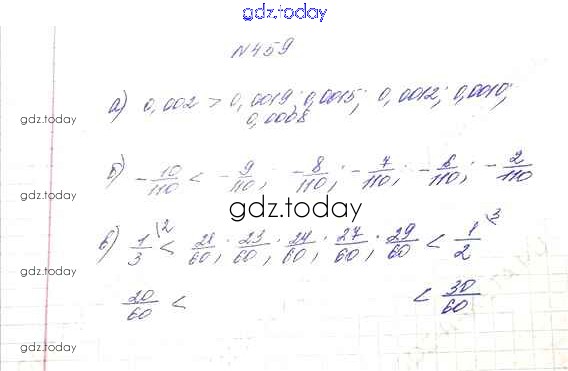 gdz.today
№ 459
а) 0,002 > 0,0019; 0,0015; 0,0012; 0,0010;
0,0008
gdz.today
б) -10/110 < -9/110; -8/110; -7/110; -6/110; -2/110
gdz.today
в) 1/3 |2 < 21/60; 23/60; 24/60; 27/60; 29/60 < 1/2 |3
gdz.today
20/60 < < 30/60
gdz.today
gdz.today